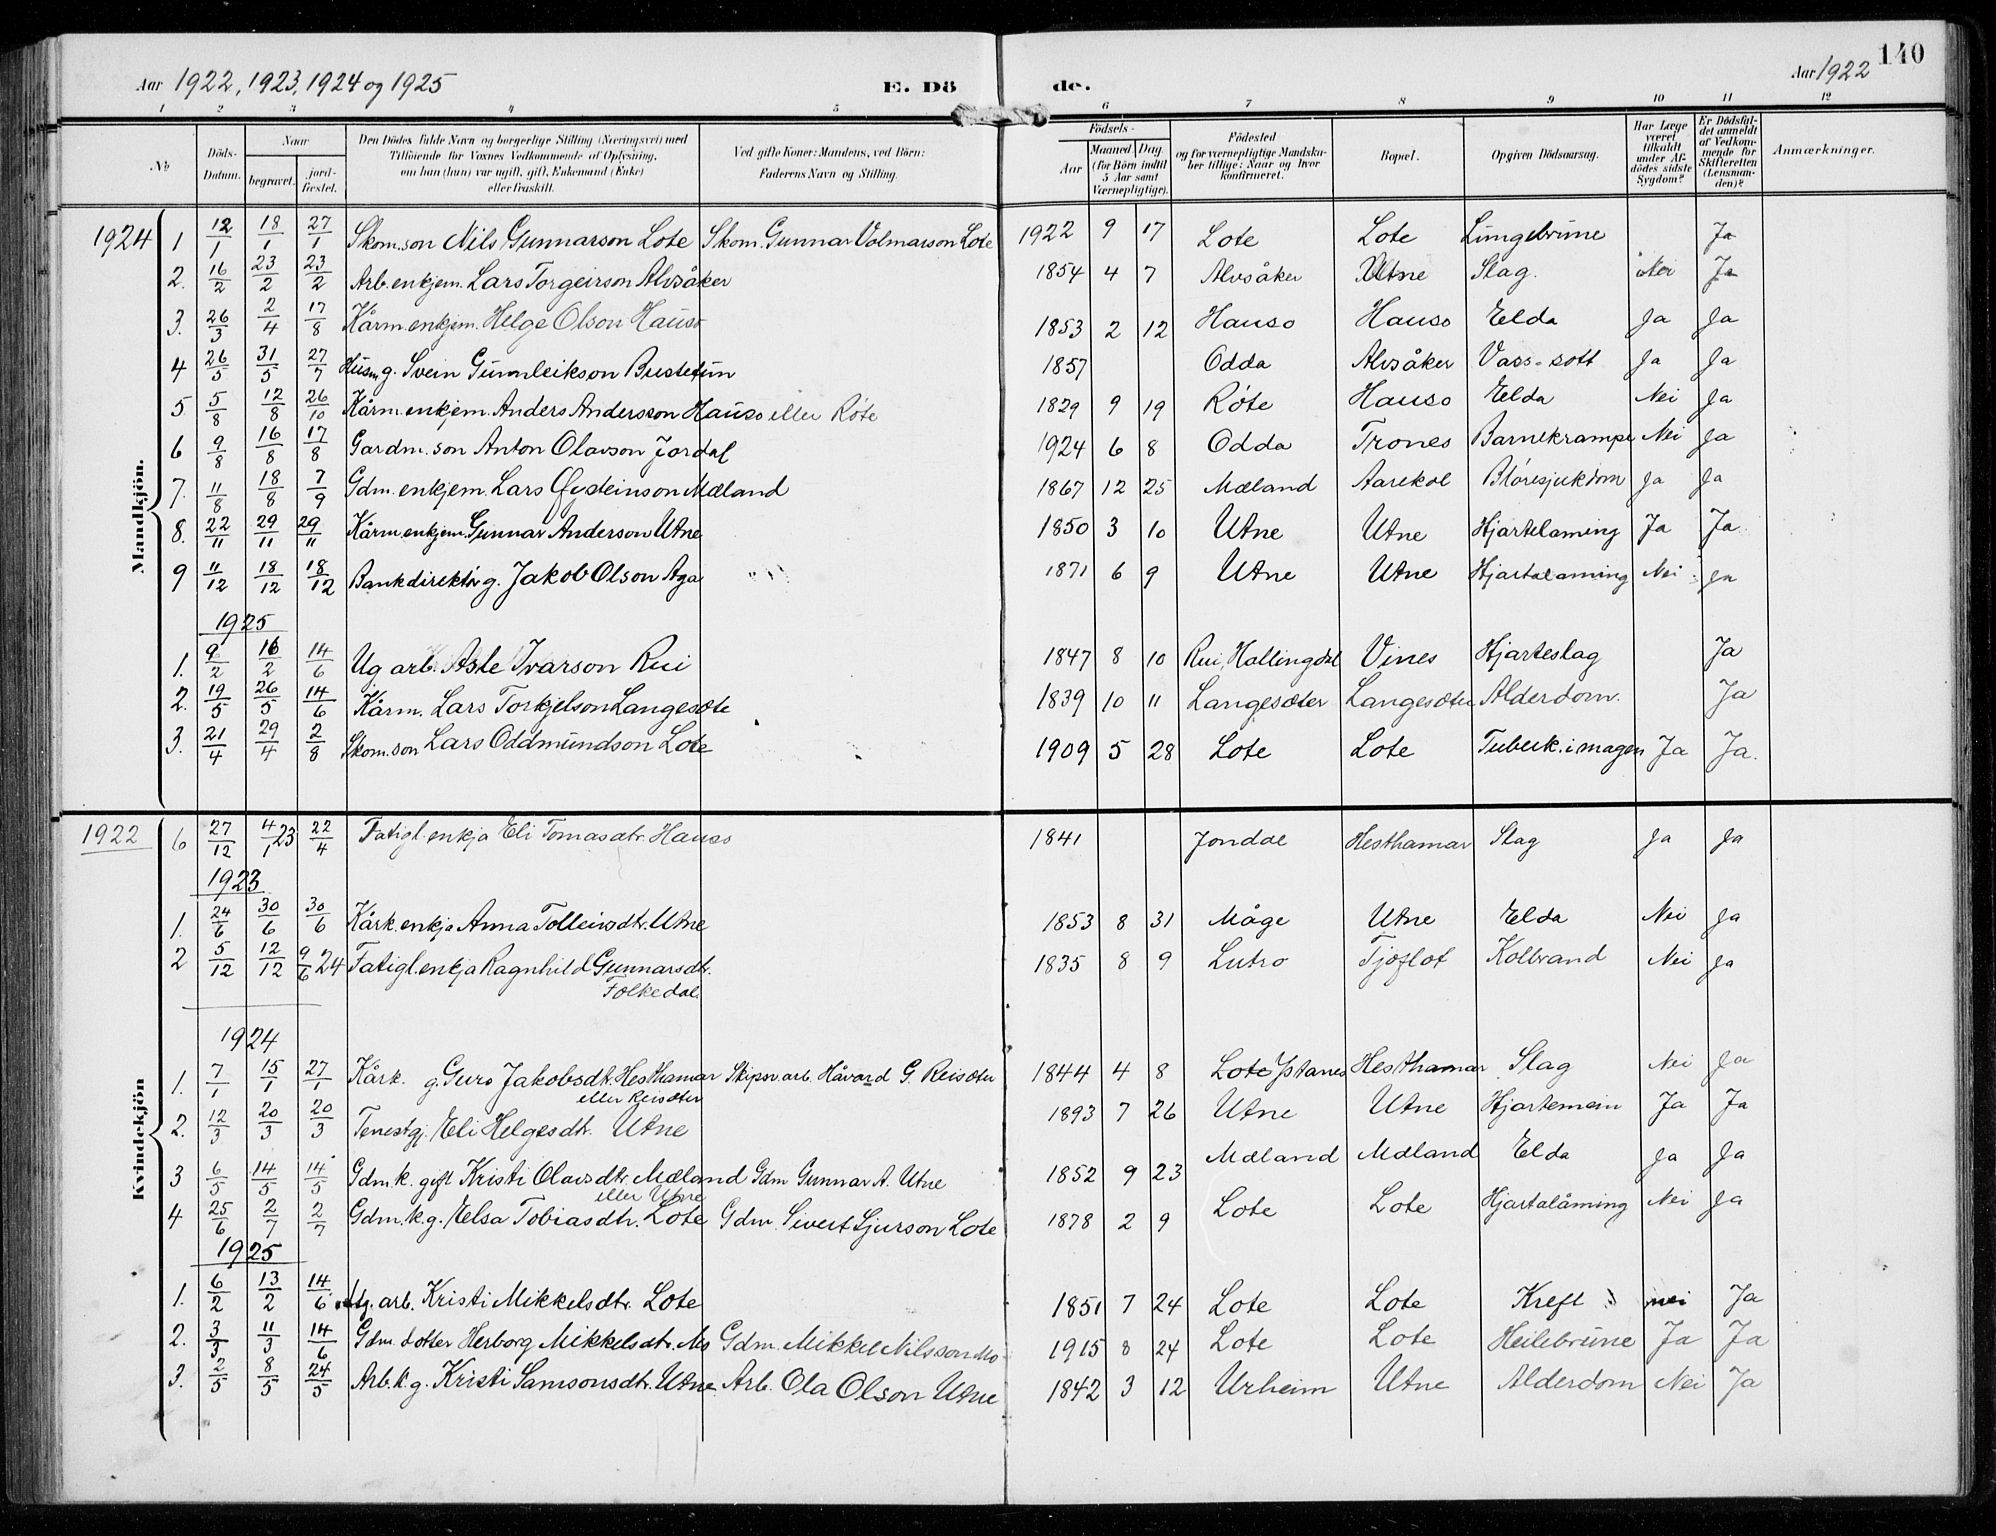 Aar 1922, 1923, 1924 og 1925 E. Dö de. Aar 1922 140
1 2 3 4 5 6 7 8 9 10 11 12
No Döds-Datum. Naar begravet. jord-fæstet. Den Dödes fulde Navn og borgerlige Stilling (Næringsvei) med Tilföiende for Voxnes Vedkommende af Oplysning, om han (hun) var ugift, gift, Enkemand (Enke) eller fraskilt. Ved gifte Koner: Mandens, ved Börn: Faderens Navn og Stilling. Födsels- Aar Maaned Dag (for Börn indtil 5 Aar samt Værnepligtige). Födested og for værnepligtige Mandska-ber tillige: Naar og hvor konfirmeret. Bopæl. Opgiven Dödsaarsag. Har Læge været tilkaldt under Af-dödes sidste Sygdom? Er Dödsfal-det anmeldt af Vedkom-mende for Skifteretten (Lensman-den)? Anmærkninger.
Mandkjön.
1924 1 12/1 18/1 27/1 Skom. son Nils Gunnarson Lote Skom. Gunnar Volmarson Lote 1922 9 17 Lote Lote Lungebrune Ja
2. 16/2 23/2 23/2 Arb. enkjem. Lars Torgeirson Alvsåker 1854 4 7 Alvsåker Utne Slag. Nei Ja
3. 26/3 2/4 17/8 Kårm. enkjem. Helge Olson Hauso 1853 2 12 Hauso Hauso Elda Ja Ja
4 26/5 31/5 27/7 Husm g. Svein Gunnleikson Bustetun 1857 Odda Alvsåker Vass-sott Ja Ja
5 5/8 12/8 26/10 Kårm. enkjem. Anders Andersson Hauso eller Røte 1829 9 19 Røte Hauso Elda Nei Ja
6 9/8 16/8 17/8 Gardm. son Anton Olavson Jordal 1924 6 8 Odda Trones Barnekrampe Nei Ja
7. 11/8 18/8 7/9 Gdm. enkjem. Lars Øysteinson Mæland 1867 12 25 Mæland Aarekol Bløresjukdom Ja Ja
8. 22/11 29/11 29/11 Kårm. enkjem. Gunnar Anderson Utne 1850 3 10 Utne Utne Hjartelaming Ja Ja
9 11/12 18/12 18/12 Bankdirektør g. Jakob Olson Aga 1871 6 9 Utne Utne Hjartalaming Nei Ja
1925
1. 9/2 16/2 14/6 Ug arb. Asle Ivarson Rui 1847 8 10 Rui, Hallingdal Vines Hjarteslag Ja
2. 19/5 26/5 14/6 Kårm. Lars Torkjelson Langesæte 1839 10 11 Langesæter Langesæter Alderdom. Ja
3. 21/4 29/4 2/8 Skom. son Lars Oddmundson Lote 1909 5 28 Lote Lote Tuberk. i magen Ja Ja.
Kvindekjön
1922 6 27/12 4/1 23 22/4 Fatigl. enkja Eli Tomasdtr. Hauso 1841 Jondal Hesthamar Slag Ja Ja
1923
1. 24/6 30/6 30/6 Kårk. enkja Anna Tolleivsdtr. Utne 1853 8 31 Måge Utne Elda Nei Ja
2 5/12 12/12 9/6 24 Fatigl. enkja Ragnhild Gunnarsdtr. 1835 8 9 Lutro Tjoflot Kolbrand Nei Ja
Folkedal.
1924
1. 7/1 15/1 27/1 Kårk. g. Guro Jakobsdt. Hesthamar Skipsv. arb. Håvard G. Reisæter 1844 4 8 Lote Ystanes Hesthamar Slag Nei Ja
eller Reisæter
2. 12/3 20/3 20/3 Tenestgj. Eli Helgesdtr. Utne 1893 7 26 Utne Utne Hjartemein Ja Ja
3 6/5 14/5 14/5 Gdm. k. gift Kristi Olavsdtr. Mæland Gdm Gunnar A. Utne 1852 9 23 Mæland Mæland Elda Ja Ja
eller Utne
4 25/6 2/7 2/7 Gdm. k. g. Elsa Tobiasdtr. Lote Gdm. Sivert Sjurson Lote 1878 2 9 Lote Lote Hjartalåming Nei Ja
1925
1. 6/2 13/2 14/6 Ug. arb. Kristi Mikkelsdtr. Lote 1851 7 24 Lote Lote Kreft nei Ja
2. 3/3 11/3 14/6 Gdm. dotter Herborg Mikkelsdtr. Mo Gdm. Mikkel Nilsson Mo 1915 8 24 Lote Lote Heilebrune Ja Ja
3. 2/5 8/5 24/5 Arb. k. g. Kristi Samsonsdtr. Utne Arb. Ola Olson Utne 1842 3 12 Urheim Utne Alderdom Nei Ja